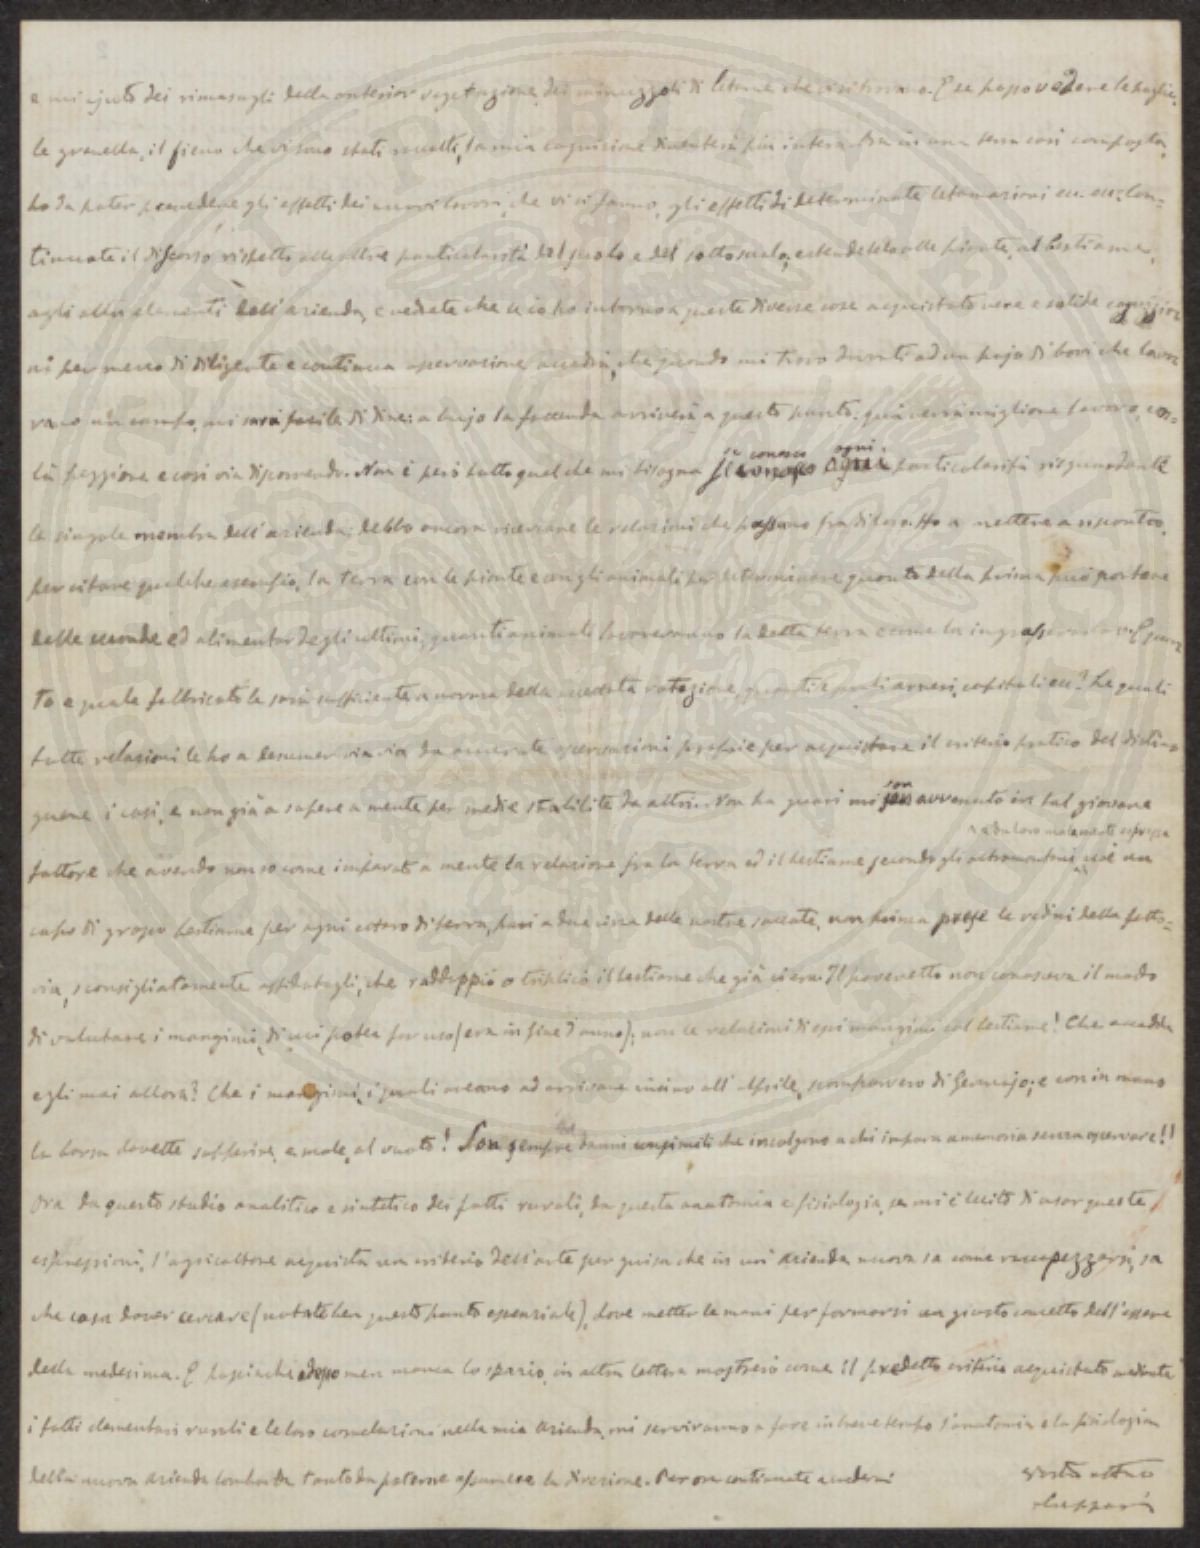 e mi ajuto dei rimasugli della anterior vegetazione, dei minuzzoli di letame che vi si trovano. E se posso vedere le paglie,
le granella, il fieno che vi sono stati raccolti, la mia cognizione diventerà più intera. Ora in una terra così composta,
ho da poter prevedere gli effetti dei nuovi lavori, che vi si fanno, gli effetti di determinate letamazioni ecc. ecc. Con=
tinuate il discorso rispetto alle altre particolarità del suolo e del sottosuolo, estendetelo alle piante, al bestiame,
agli altri elementi dell'azienda, e vedete che se io ho intorno a queste diverse cose acquistato vere e solide cognizio
ni per mezzo di diligente e continua osservazione, accadrà, che quando mi trovo davanti ad un pajo di bovi che lavo
rano un campo, mi sarà facile di dire: a bujo la faccenda arriverà a questo punto: quà verrà migliore lavoro, co=
là peggiore e così via discorrendo. Non è però tutto quel che mi bisogna
se conosco ogni
particolarità risguardante
le singole membra dell'azienda; debbo ancora ricercare le relazioni che passano fra di loro. Ho a mettere a riscontro,
per citare qualche esempio, la terra con le piante e con gli animali per determinare quanto della prima può portare
delle seconde ed alimentar degli ultimi, quanti animali lavoreranno la detta terra e come la ingrasseranno. E quan
to e quale fabbricato le sarà sufficiente a norma della rotazione, quanti e quali arnesi, capitali ecc? Le quali
tutte relazioni le ho a desumer via via da accurate osservazioni proprie per acquistare il criterio pratico del distin
guere i casi, e non già a sapere a mente per medie stabilite da altri. Non ha guari mi
son
avvenuto in tal giovane
fattore che avendo non so come imparato a mente la relazione fra la terra ed il bestiame secondo gli oltramontani cioè un
capo di grosso bestiame per ogni ettaro di terra, pari a due circa delle nostre saccate, non prima prese le redini della fatto=
ria, sconsigliatamente affidatagli, che raddoppiò o triplicò il bestiame che già ci era. Il poveretto non conosceva il modo
di valutare i mangimi, di cui potea far uso (era in fine d'anno); non le relazioni di essi mangimi col bestiame! Che accadde
egli mai allora? Che i mangimi, i quali aveano ad arrivare vicino all'Aprile, scomparvero di Gennajo; e con in mano
la borsa dovette sopperire, e male, al vuoto! Son sempre danni consimili che incolgono a chi impara a memoria senza osservare!!
Ora da questo studio analitico e sintetico dei fatti rurali, da questa anatomia e fisiologia, se mi è lecito di usar queste
espressioni, l'agricoltore acquista un criterio dell'arte per guisa che in un'azienda nuova sa come raccapezzarsi, sa
che cosa dover cercare (notate ben questo punto essenziale), dove metter le mani per formarsi un giusto concetto dell'essere
della medesima. E poichè adesso men manca lo spazio, in altra lettera mostrerò come il predetto criterio acquistato mediante
i fatti elementari rurali e le loro correlazioni nella mia azienda, mi serviranno a fare in breve tempo l'anatomia e la fisiologia
della nuova azienda lombarda tanto da poterne assumere la direzione. Per ora continuate a credermi
vostro